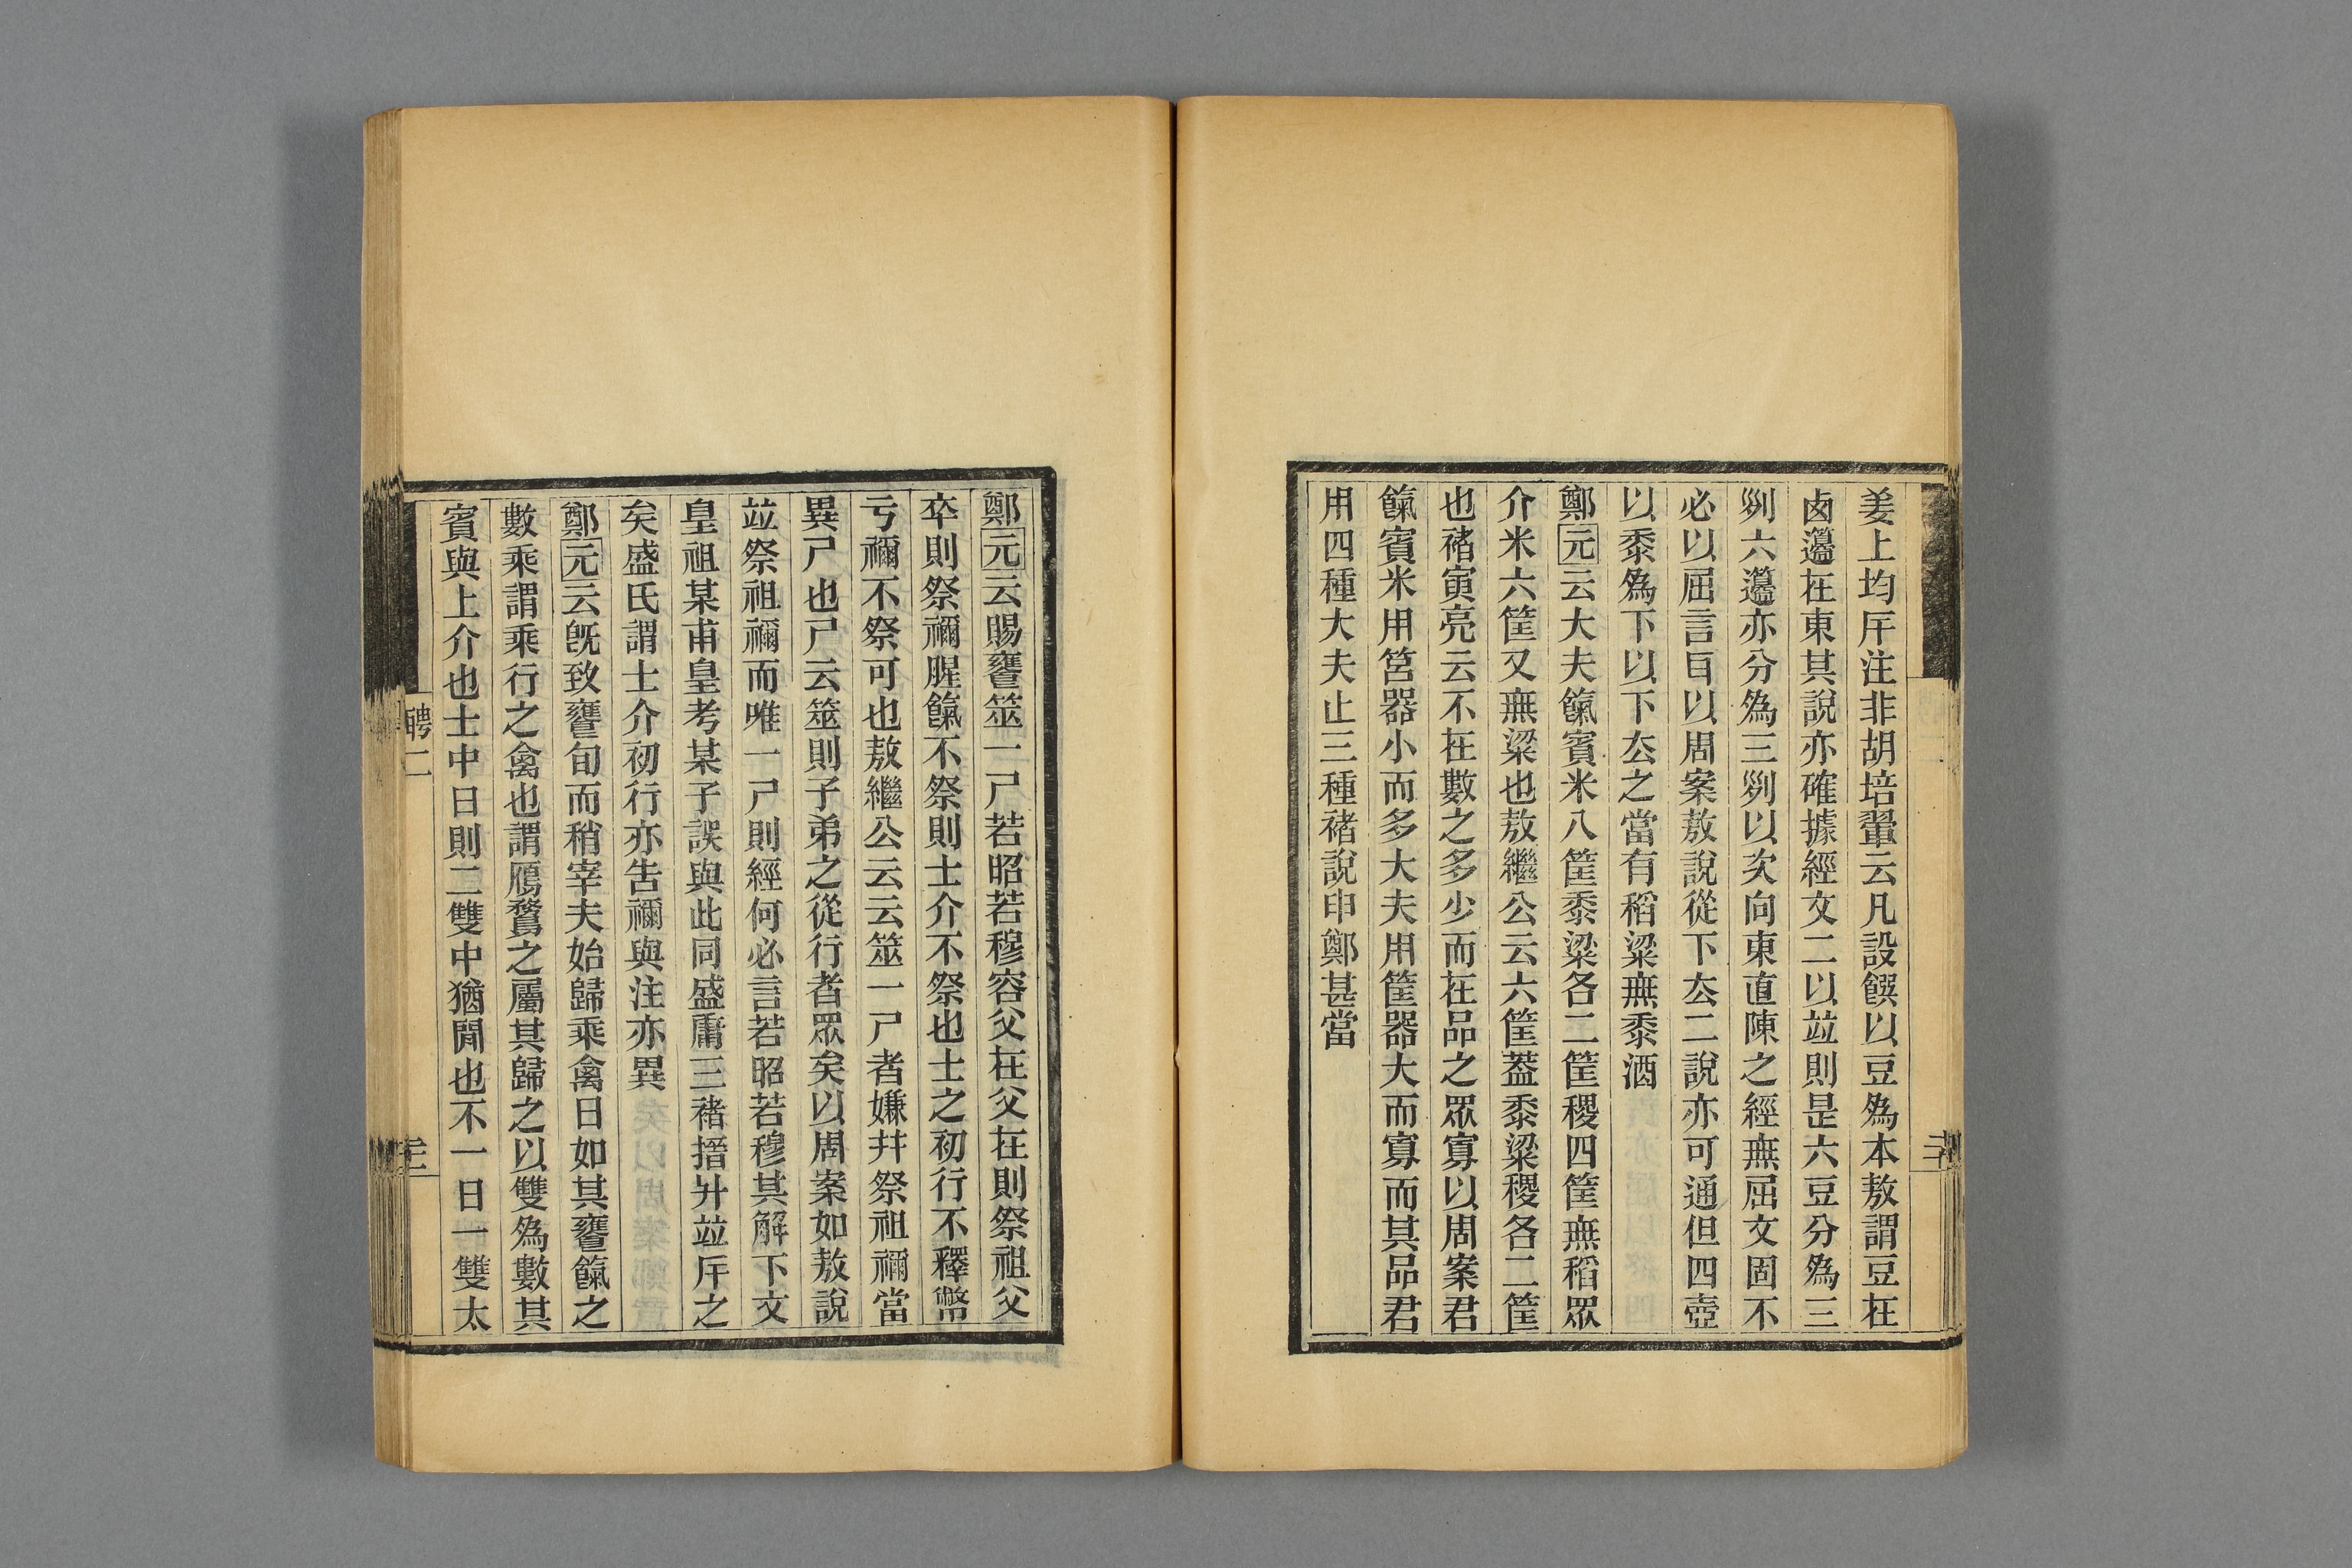 姜上均㡿注非胡培翬云凡設饌以豆爲本敖謂豆在
卤籩在東其說亦確據經文二以竝則是六豆分爲三
列六籩亦分爲三列以次向東直陳之經無屈文固不
必以屈言㠯以周案敖說從下厺二說亦可通但四壺
以黍爲下以下厺之當有稻粱無黍酒
鄭元云大夫餼賓米八筐黍粱各二筐稷四筐無稻眾
介米六筐又無粱也敖繼公云六筐葢黍粱稷各二筐
也褚寅亮云不在數之多少而在品之眾寡以周案君
餼賓米用筥器小而多大夫用筐器大而寡而其品君
用四種大夫止三種褚說申鄭甚當
鄭元云賜饔筮一尸若昭若穆容父在父在則祭祖父
卒則祭禰腥餼不祭則士介不祭也士之初行不釋幣
亏禰不祭可也敖繼公云云筮一尸者嫌并祭祖禰當
異尸也尸云筮則子弟之從行者眾矣以周案如敖說
竝祭祖禰而唯一尸則經何必言若昭若穆其解下文
皇祖某甫皇考某子誤與此同盛庸三褚搢升竝㡿之
矣盛氏謂士介初行亦告禰與注亦異
鄭元云旣致饔旬而稍宰夫始歸乘禽日如其饔餼之
數乘謂乘行之禽也謂鴈鶩之屬其歸之以雙爲數其
賓與上介也士中日則二雙中猶閒也不一日一雙太
聘二